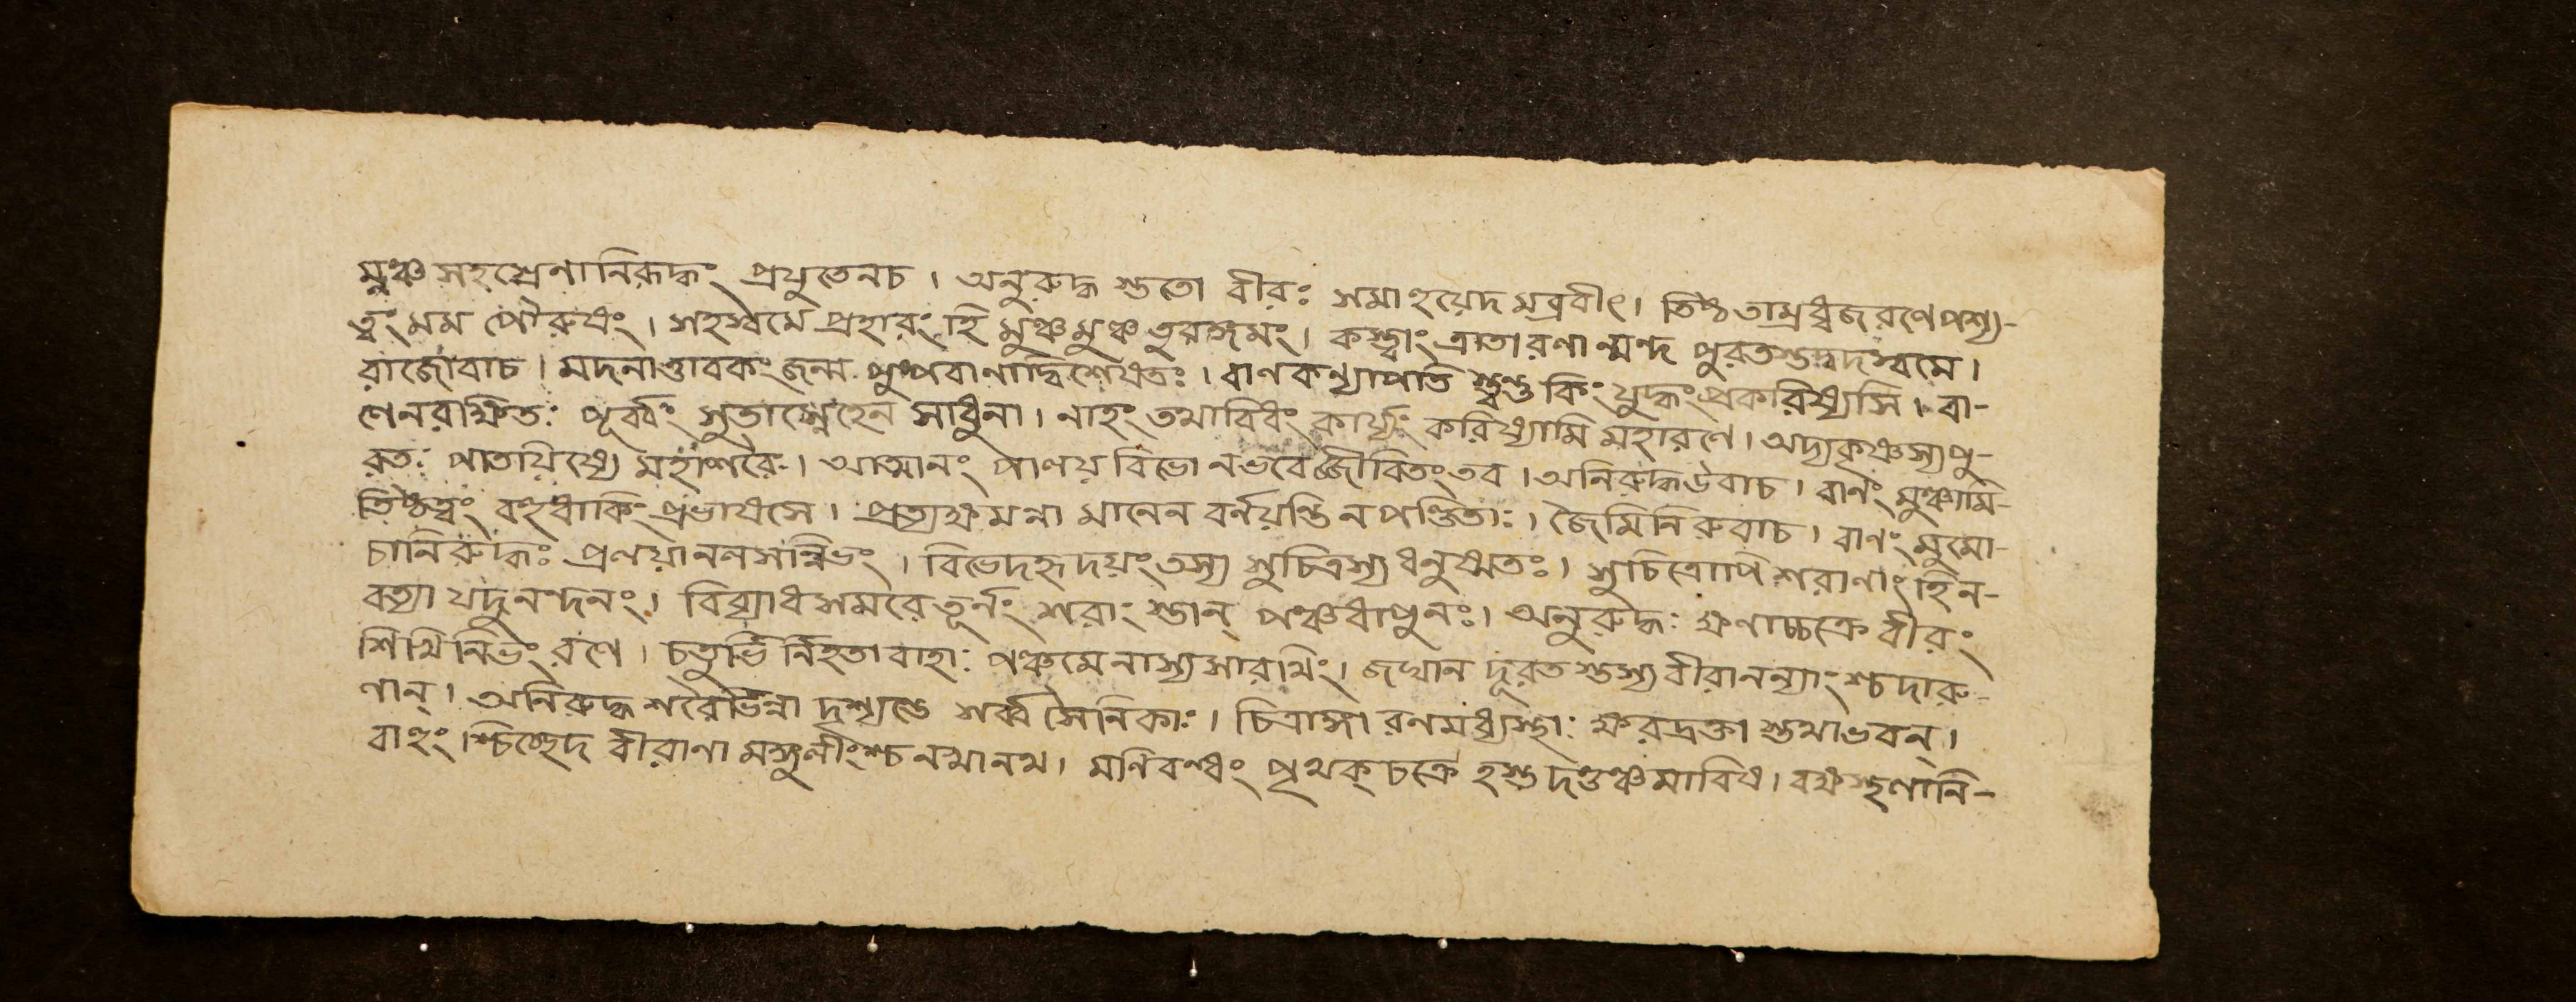 মুঞ্চ সহস্রেণানিরূদ্ধং প্রযুতেনচ। অনুরুদ্ধ স্ততো বীরঃ সমাহয়েদ মব্রবীৎ। তিষ্ঠ তাম্রধ্বজ রণে পশ্য-
ত্বং মম পৌরুষং। সহস্বমে প্রহারংহি মুঞ্চ মুঞ্চ তুরঙ্গমং। কস্ত্বাং ত্রাতা রণান্মন্দ পুরতস্তদ্বদস্বমে।
রাজোবাচ। মদনাত্তাবকং জন্ম পুষ্পবাণাদ্বিশেষতঃ। বাণকন্যাপতি স্ত্বন্তু কিং যুদ্ধং প্রকরিষ্যসি। বা-
ণেনরক্ষিতঃ পূর্ব্বং সুতাস্নেহেন সাধুনা। নাহং তথাবিধং কার্য্যং করিষ্যামি মহারণে। অদ্যকৃষ্ণস্যপু-
রতঃ পাতয়িষ্যে মহাশরৈঃ। আত্মানং পালয় বিভো নভবেজ্জীবিতং তব। অনিরুদ্ধউবাচ। বাণং মুঞ্চামি-
তিষ্ঠত্বং বহুধাকিং প্রভাষসে। প্রত্যক্ষমন্না মানেন বর্নয়ন্তি ন পণ্ডিতাঃ। জৈমিনিরুবাচ। বাণং মুমো-
চানিরুদ্ধঃ প্রলয়াননসন্নিভং। বিভেদহৃদয়ং তস্য সুচিত্রস্য ধনুষ্মতঃ। সুচিত্রোপি শরাণাংহি ন-
বত্যা যদুনন্দনং। বিব্যাধসমরে তূর্নং শরাংস্তান্ পঞ্চধাপুনঃ। অনুরুদ্ধঃ ক্ষণাচ্চক্রে বীরং
শিখিনিভং রণে। চতুর্ভি র্নিহতাবাহাঃ পঞ্চমেনাস্যসারথিং। জঘান দূরত স্তস্য বীরানন্যাংশ্চদারু-
ণান্। অনিরুদ্ধ শরৈর্ভিন্না দৃশ্যন্তে সর্ব্ব সৈনিকাঃ। চিত্রাঙ্গা রণমধ্যস্থাঃ ক্ষরদ্রক্তা স্তথাভবন্।
বাহুং শ্চিচ্ছেদ বীরাণা মঙ্গুলীংশ্চ নখানথ। মণিবন্ধং পৃথক্ চক্রে হস্তদণ্ডঞ্চমাবিষ। বক্ষস্থলানি-